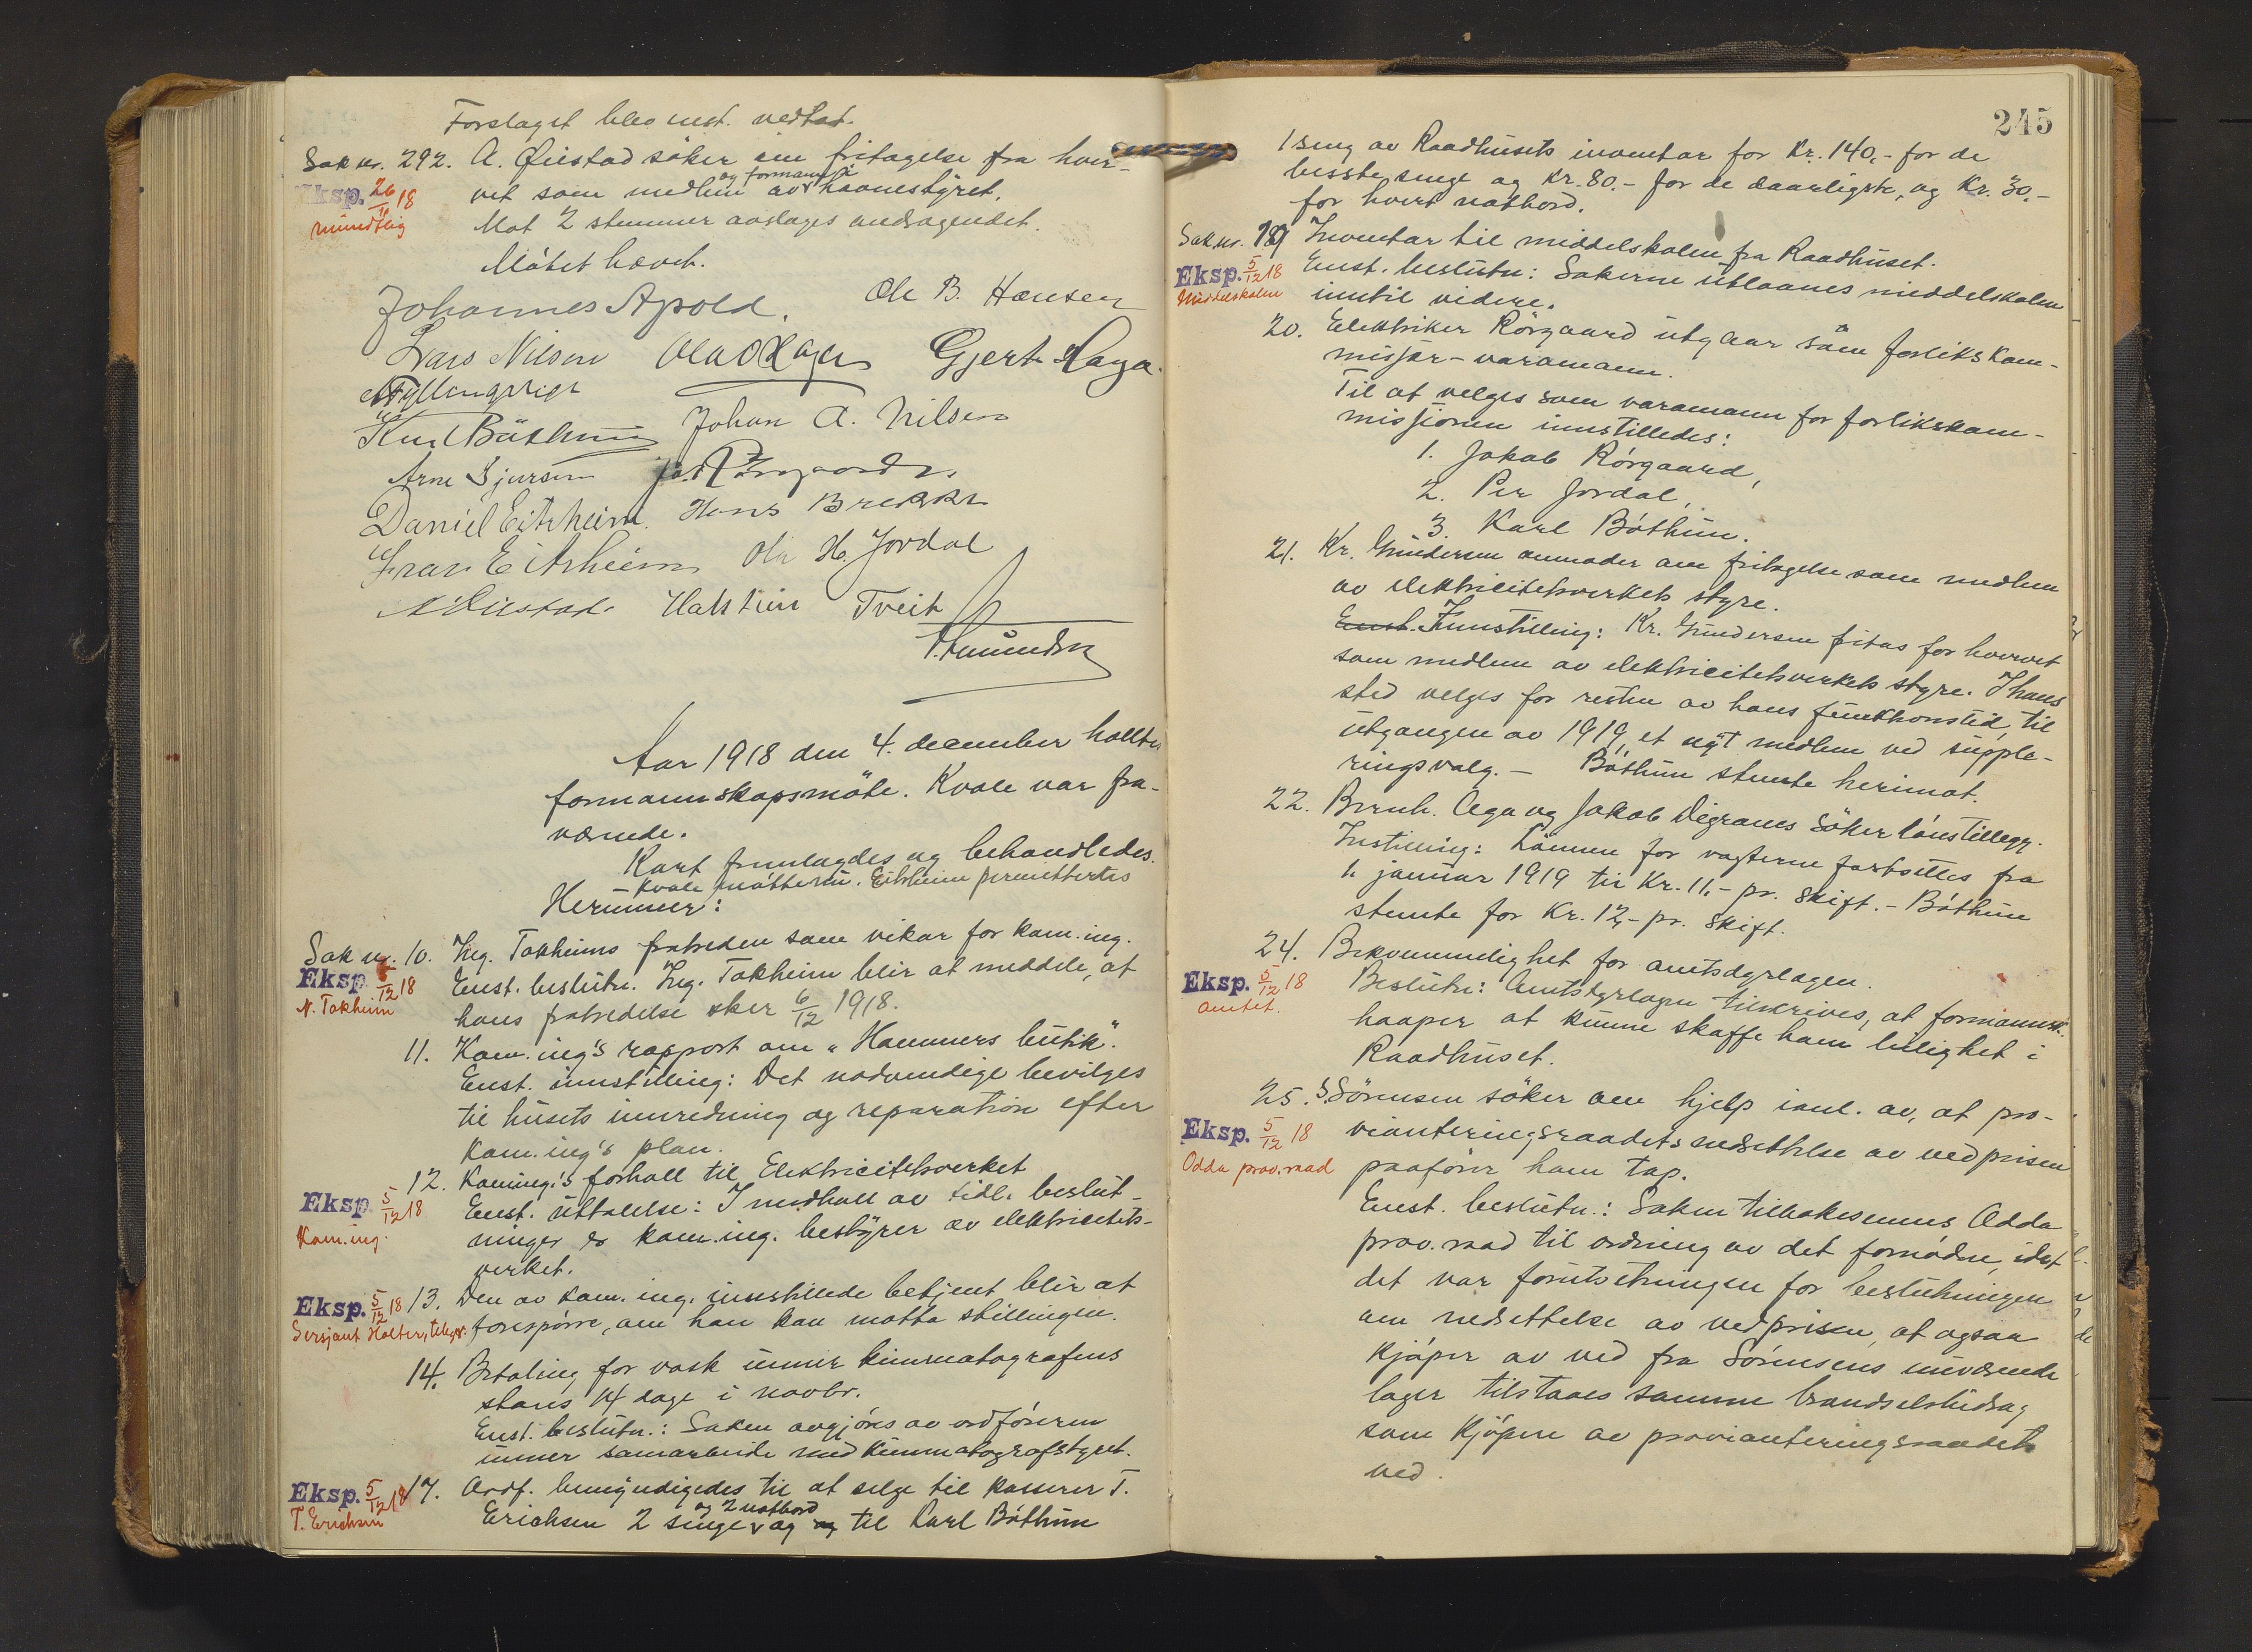 Forslaget blev enst. vedtat.
Sak nr. 292. A. Øiestad söker om fritagelse fra hver-
Eksp. 26/11 18
og formann i
vet som medlem av havnestyret.
mundtlig
Mot 2 stemmer avslages andragendet.
Mötet hævet.
Johannes Apold. Ole B. Hansen
Lars Nilsen Gjert Haga.
Johan A. Nilsen
Arne Sjursen
Daniel Eitrheim. Hans Brekke
Eitrheim Ola H. Jordal
Halstein Tveit
Aar 1918 den 4. december holltes
formannskapsmöte. Kvale var fra-
værende.
Kart fremlagdes og behandledes.
- Kvale mötte nu. Eitrheim permittertes
Herunner:
Sak nr. 10. Ing. Tokheims fratreden som vikar for kom. ing.
Eksp. 5/12 18
Enst. beslutn. Ing. Tokheim blir at meddele, at
N. Tokheim
hans fratredelse sker 6/12 1918.
11. Kom. ing's rapport om "Hammers butik".
Enst. innstilling: Det nödvendige bevilges
til husets innredning og reparation efter
Kom. ing's plan.
12. Koming's forhold til Elektricitetsverket
Eksp. 5/12 18
Enst. uttalelse: I medhold av tidl. beslut-
Kom. ing.
ninger er kom. ing. bestyrer av elektricitets-
verket.
Eksp. 5/12 18 13. Den av kom. ing. innstillede betjent blir at
Sersjant Holter, telegr. forespörre, om han kan motta stillingen.
14. Betaling for vask unner kinematografens
stans 14 dage i novbr.
Enst. beslutn.: Saken avgjöres av ordföreren
unner samarbeide med Kinematografstyret.
Eksp. 5/12 18 17. Ordf. bemyndigedes til at selge til kasserer T.
T. Erichsen
og 2 natbord
Erichsen 2 senge og til Karl Böthun
245
1 seng av Raadhusets inventar for Kr. 140,- for de
besste senge og Kr. 80.- for de daarligste, og Kr. 30.-
for hvert natbord.
Sak nr. 19 Inventar til middelskolen fra Raadhuset.
Eksp. 5/12 18
Enst. beslutn: Sakerne utlaanes middelskolen
Middelskolen
inntil videre.
20. Elektriker Rörgaard utgaar som forlikskom-
missjör-varamann.
Til at velges som varamann for forlikskom-
missjonen innstilledes:
1. Jakob Rörgaard,
2. Per Jordal,
3. Karl Böthun.
21. Kr. Gundersen anmoder om fritagelse som medlem
av elektricitetsverkets styre.
Enst. Innstilling: Kr. Gundersen fritas for hvervet
som medlem av elektricitetsverkets styre. I hans
sted velges for resten av hans funktionstid, til
utgangen av 1919, et nyt medlem ved supple-
ringsvalg. - Böthun stemte herimot.
22. Bernh. Aga og Jakob Digranes söker lönstillegg.
Instilling: Lönnen for vagterne fastsettes fra
1. januar 1919 til Kr. 11,- pr. skift. - Böthun
stemte for Kr. 12,- pr. skift.
24. Bekvemmelighet for amtsdyrlægen.
Eksp. 5/12 18
Beslutn: Amtsdyrlægen tilskrives, at formannsk.
amtet.
haaper at kunne skaffe ham leilighet i
Raadhuset.
25. S. Sörensen söker om hjelp i anl. av, at pro-
Eksp. 5/12 18
vianteringsraadets nedsettelse av vedprisen
Odda prov. raad
paaförer ham tap.
Enst. beslutn.: Saken tilbakesennes Odda
prov. raad til ordning av det fornödne, idet
det var forutsetningen for beslutningen
om nedsettelse av vedprisen, at ogsaa
Kjöper av ved fra Sörensens nuværende
lager tilstaaes samme brændselsbidrag
som kjöpere av provianteringsraadets
ved.